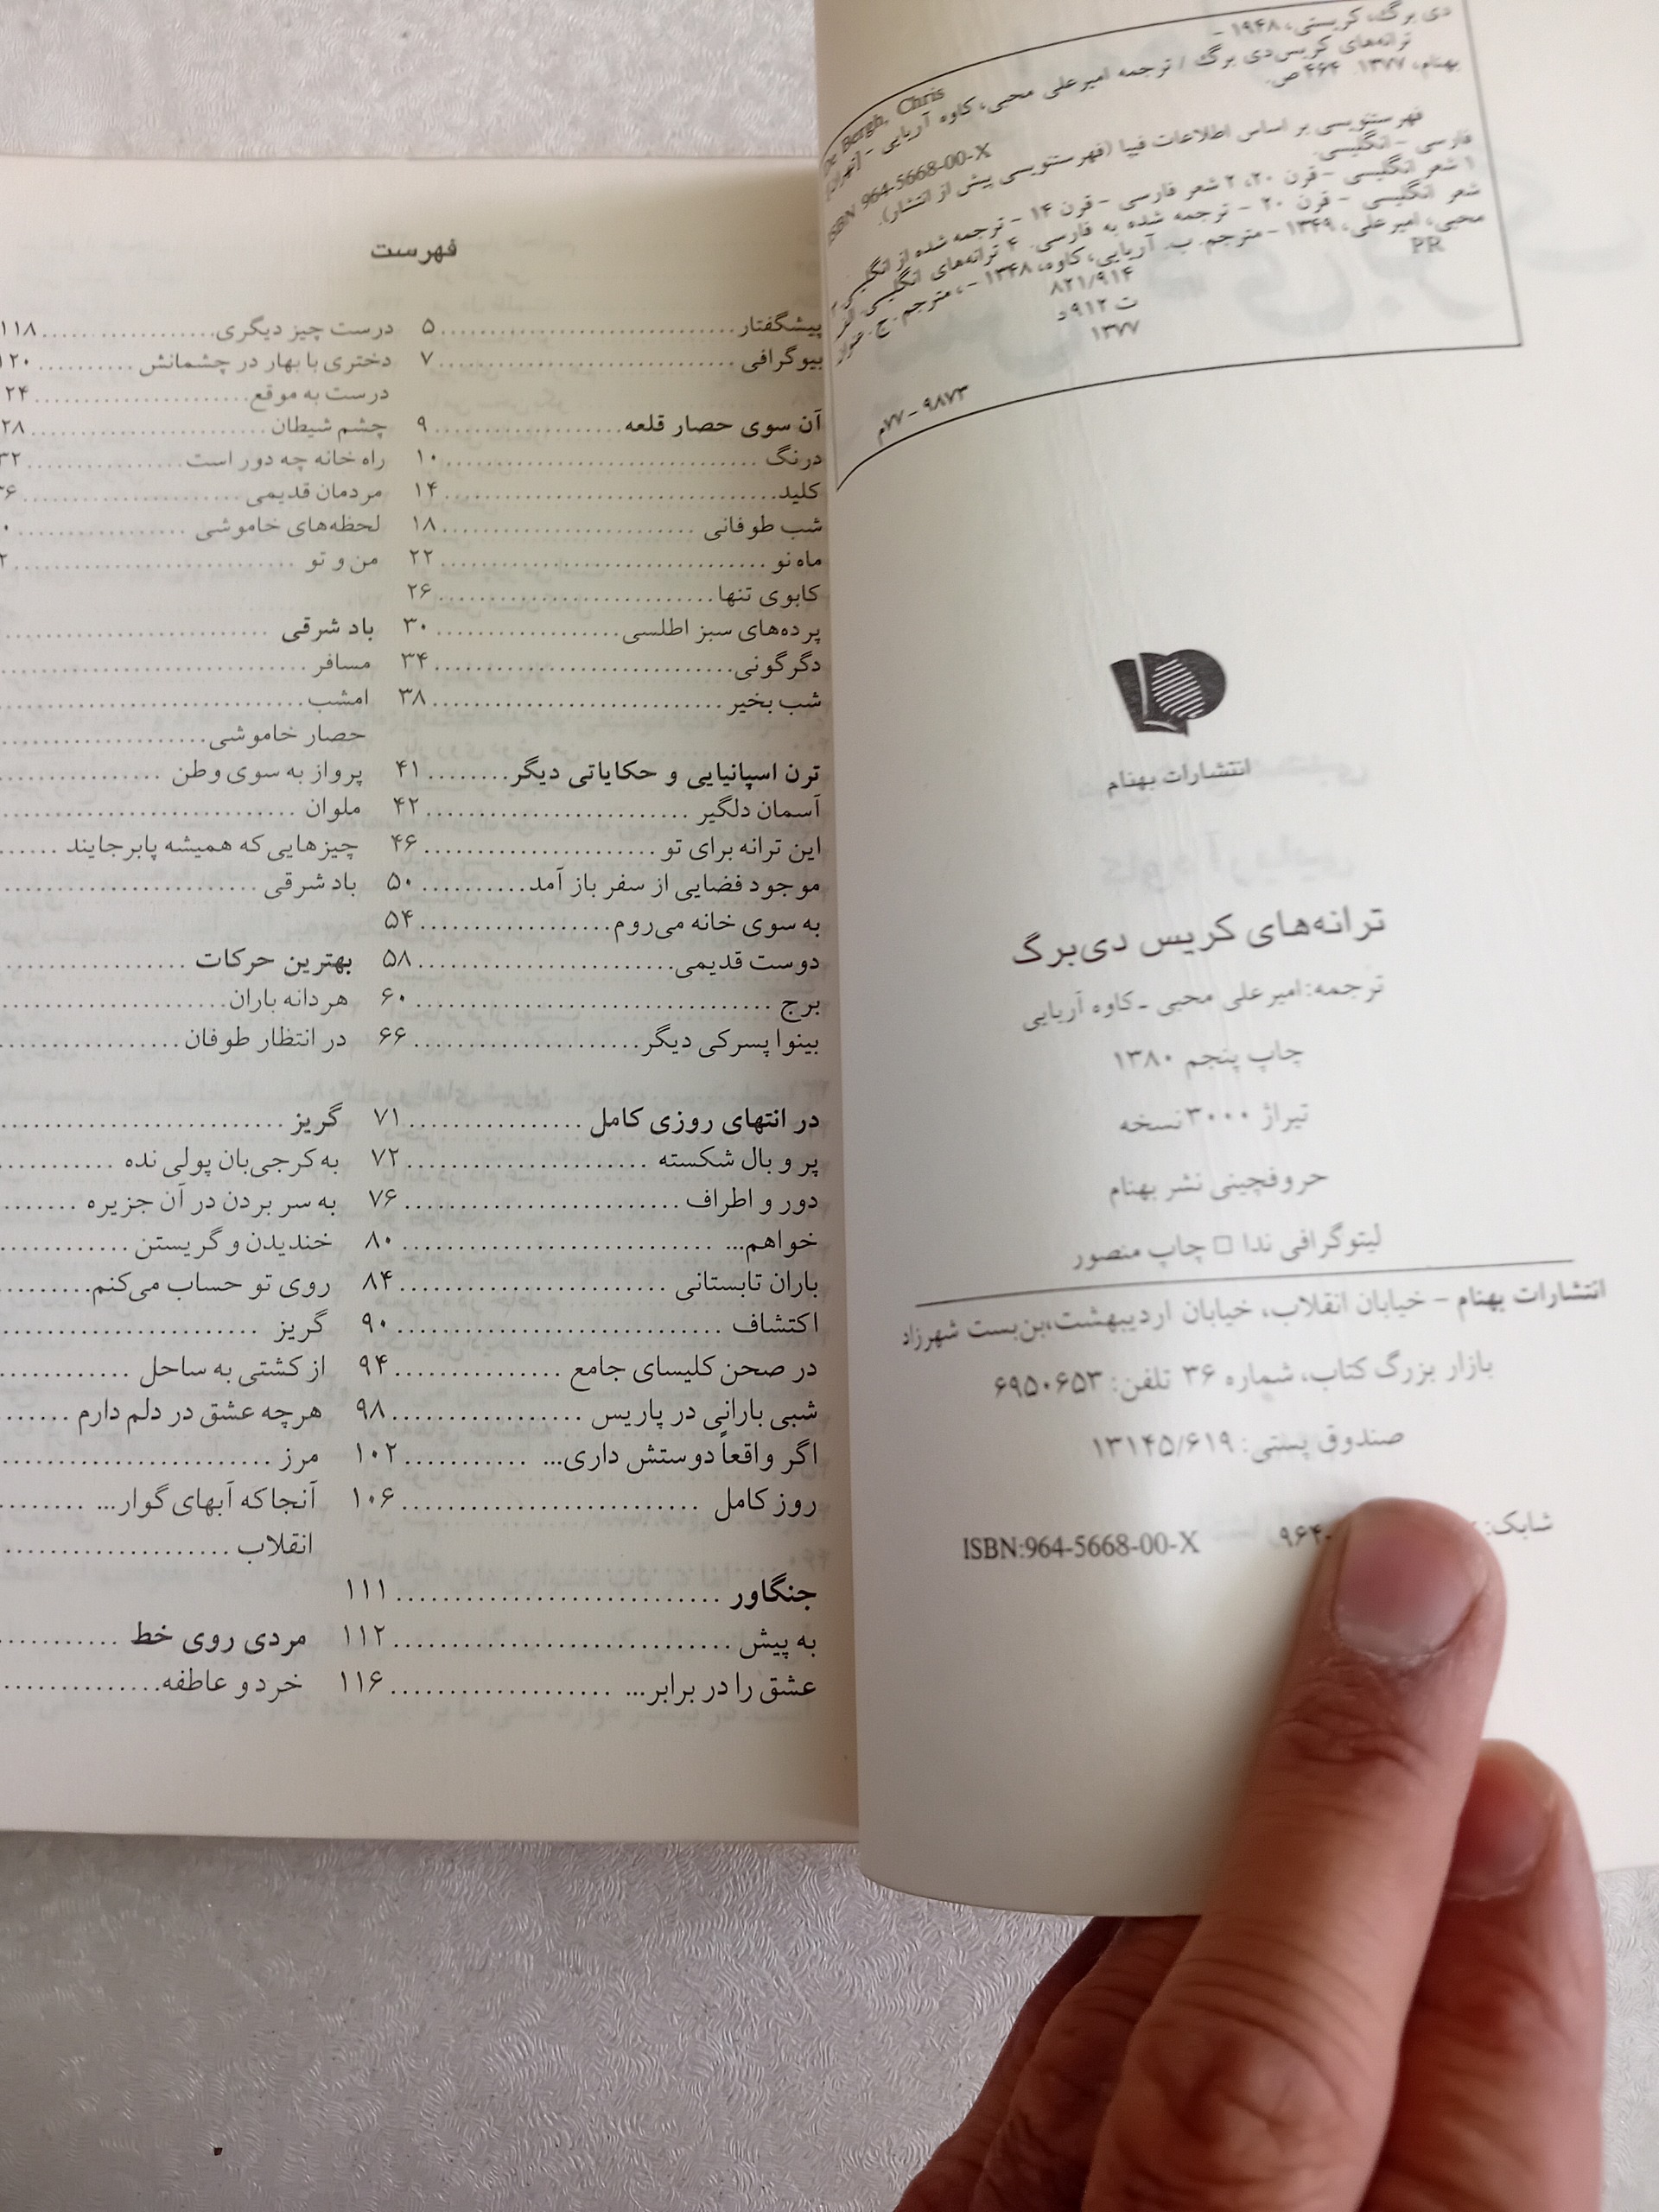 دی برگ، کریستی، ۱۹۴۸ -
De Bergh, Chris
ترانه‌های کریس‌دی برگ / ترجمه امیرعلی محبی، کاوه آریایی - [تهران]
بهنام، ۱۳۷۷. ۴۶۴ ص.
ISBN 964-5668-00-X
فهرستنویسی بر اساس اطلاعات فیپا (فهرستنویسی پیش از انتشار).
فارسی - انگلیسی.
۱ شعر انگلیسی - قرن ۲۰، ۲ شعر فارسی - قرن ۱۴ - ترجمه شده از انگلیسی
شعر انگلیسی - قرن ۲۰ - ترجمه شده به فارسی. ۴ ترانه‌های انگلیسی. الف
محبی، امیرعلی، ۱۳۴۹ - مترجم. ب. آریایی، کاوه، ۱۳۴۸ -، مترجم. ج. عنوان
PR
۸۲۱/۹۱۴
ت ۹۱۲د
۱۳۷۷
۷۷-۹۸۷۳م
انتشارات بهنام
ترانه‌های کریس دی‌برگ
ترجمه: امیرعلی محبی ـ کاوه آریایی
چاپ پنجم ۱۳۸۰
تیراژ ۳۰۰۰ نسخه
حروفچینی نشر بهنام
لیتوگرافی ندا □ چاپ منصور
انتشارات بهنام - خیابان انقلاب، خیابان اردیبهشت،بن‌بست شهرزاد
بازار بزرگ کتاب، شماره ۳۶ تلفن: ۶۹۵۰۶۵۳
صندوق پستی: ۱۳۱۴۵/۶۱۹
شابک: ۹۶۴- ISBN:964-5668-00-X
فهرست
پیشگفتار ۵
بیوگرافی ۷
آن سوی حصار قلعه ۹
درنگ ۱۰
کلید ۱۴
شب طوفانی ۱۸
ماه نو ۲۲
کابوی تنها ۲۶
پرده‌های سبز اطلسی ۳۰
دگرگونی ۳۴
شب بخیر ۳۸
ترن اسپانیایی و حکایاتی دیگر ۴۱
آسمان دلگیر ۴۲
این ترانه برای تو ۴۶
موجود فضایی از سفر باز آمد ۵۰
به سوی خانه می‌روم ۵۴
دوست قدیمی ۵۸
برج ۶۰
بینوا پسرکی دیگر ۶۶
در انتهای روزی کامل ۷۱
پر و بال شکسته ۷۲
دور و اطراف ۷۶
خواهم... ۸۰
باران تابستانی ۸۴
اکتشاف ۹۰
در صحن کلیسای جامع ۹۴
شبی بارانی در پاریس ۹۸
اگر واقعاً دوستش داری... ۱۰۲
روز کامل ۱۰۶
جنگاور ۱۱۱
به پیش ۱۱۲
عشق را در برابر... ۱۱۶
درست چیز دیگری ۱۱۸
دختری با بهار در چشمانش ۱۲۰
درست به موقع ۲۴
چشم شیطان ۲۸
راه خانه چه دور است ۳۲
مردمان قدیمی ۳۶
لحظه‌های خاموشی ۰
من و تو ۲
باد شرقی
مسافر
امشب
حصار خاموشی
پرواز به سوی وطن
ملوان
چیزهایی که همیشه پابرجایند
باد شرقی
بهترین حرکات
هر دانه باران
در انتظار طوفان
گریز
به کرجی‌بان پولی نده
به سر بردن در آن جزیره
خندیدن و گریستن
روی تو حساب می‌کنم
گریز
از کشتی به ساحل
هرچه عشق در دلم دارم
مرز
آنجا که آبهای گوار...
انقلاب
مردی روی خط
خرد و عاطفه